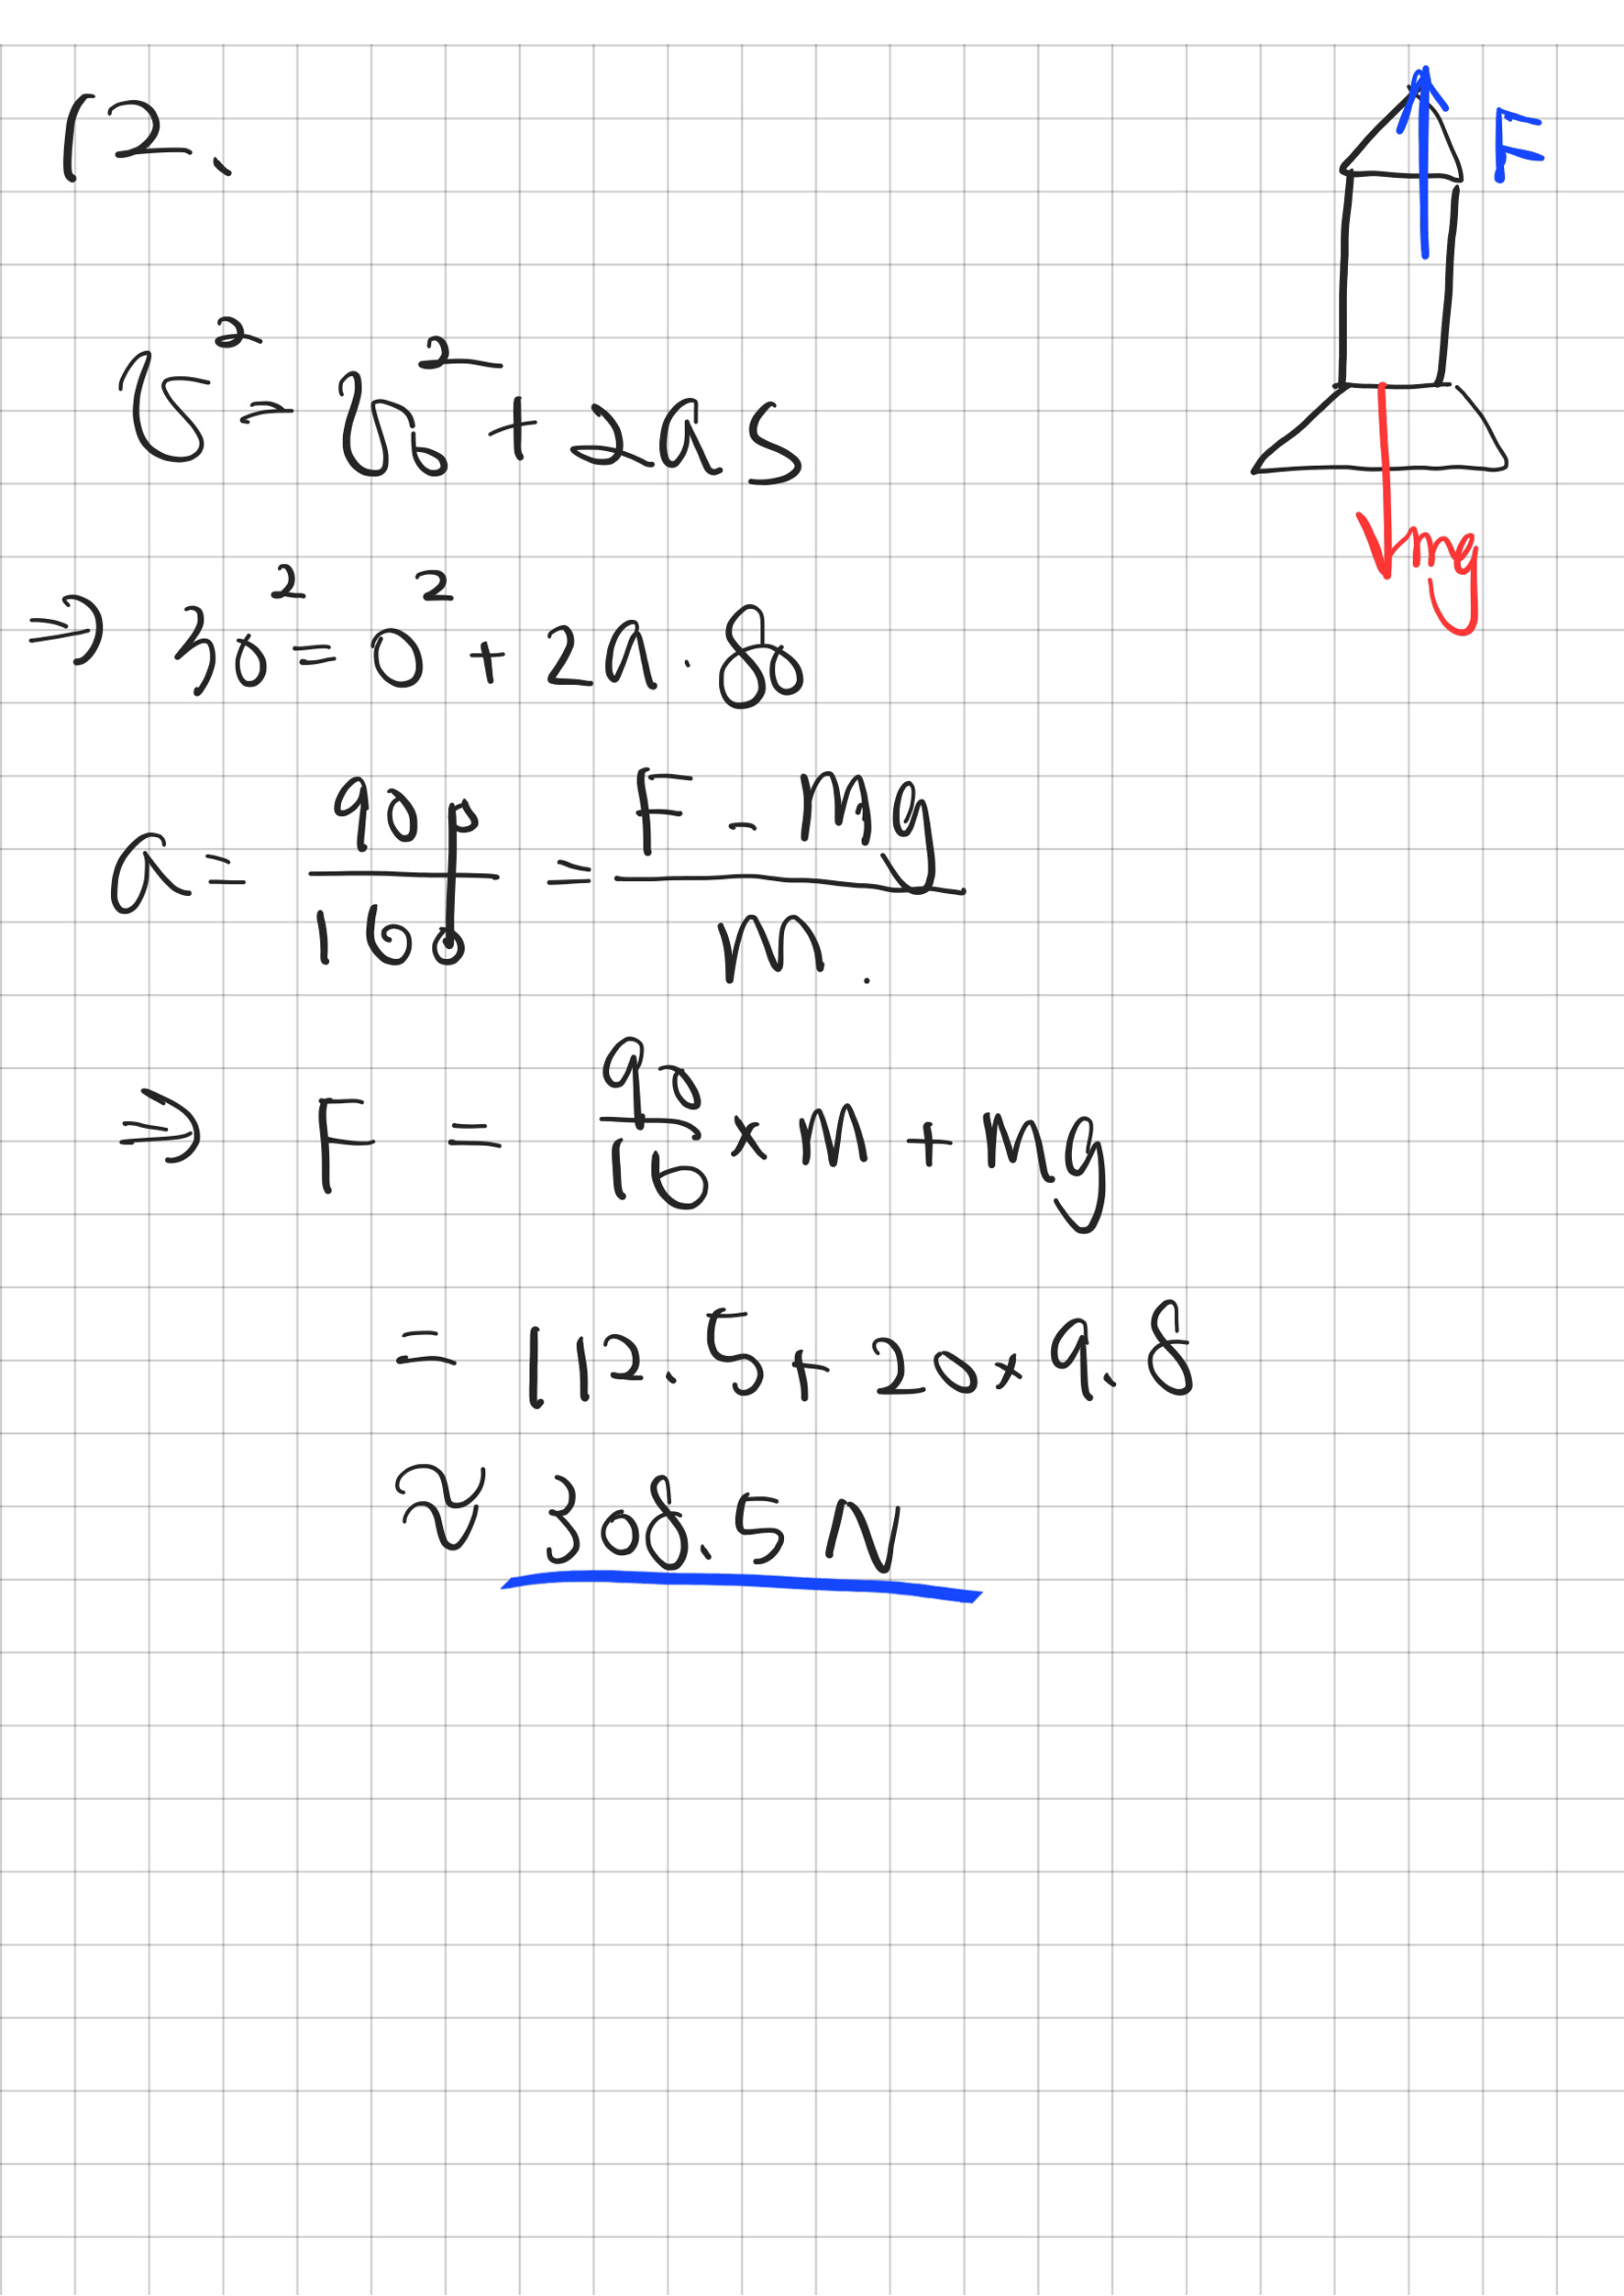 12.
F
v² = v₀² + 2as
mg
⇒ 30² = 0² + 2a · 80
a = 900/160 = (F - mg)/m.
⇒ F = 90/16 × m + mg
= 112.5 + 20 × 9.8
≈ 308.5 N